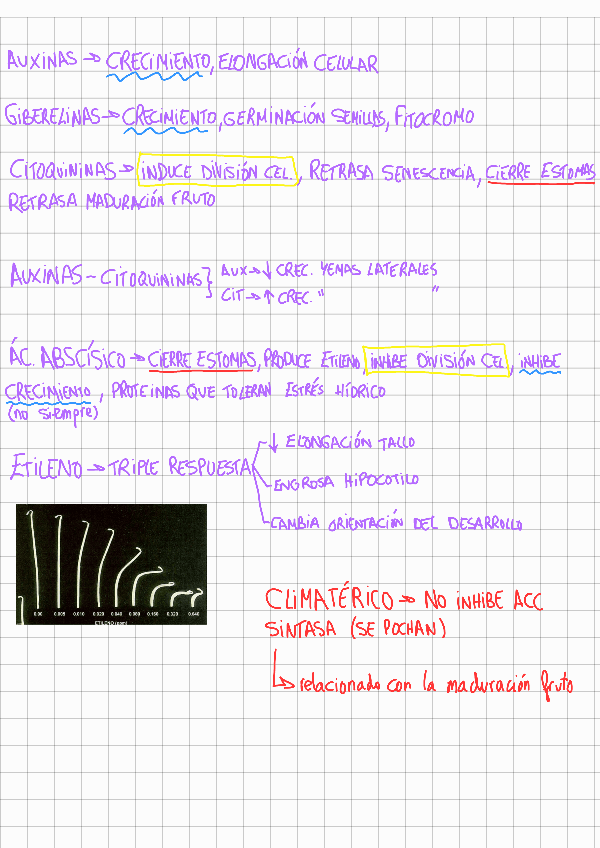 AUXINAS → CRECIMIENTO, ELONGACIÓN CELULAR
GIBERELINAS → CRECIMIENTO, GERMINACIÓN SEMILLAS, FITOCROMO
CITOQUININAS → INDUCE DIVISIÓN CEL., RETRASA SENESCENCIA, CIERRE ESTOMAS
RETRASA MADURACIÓN FRUTO
AUXINAS - CITOQUININAS } AUX → ↓ CREC. YEMAS LATERALES
CIT → ↑ CREC. " "
ÁC. ABSCÍSICO → CIERRE ESTOMAS, PRODUCE ETILENO, INHIBE DIVISIÓN CEL, INHIBE
CRECIMIENTO, PROTEINAS QUE TOLERAN ESTRÉS HÍDRICO
(no siempre)
↓ ELONGACIÓN TALLO
ETILENO → TRIPLE RESPUESTA
ENGROSA HIPOCOTILO
CAMBIA ORIENTACIÓN DEL DESARROLLO
0.00 0.005 0.010 0.020 0.040 0.080 0.160 0.320 0.640
ETILENO (ppm)
CLIMATÉRICO → NO INHIBE ACC
SINTASA (SE POCHAN)
↳ relacionado con la maduración fruto